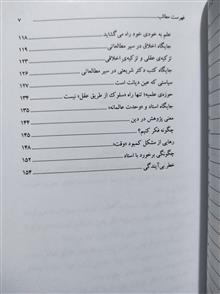 فهرست مطالب ۷
علم به خودی خود راه می‌گشاید ۱۱۸
جایگاه اخلاق در سیر مطالعاتی ۱۱۹
تزکیه‌ی عقلی و تزکیه‌ی اخلاقی ۱۲۳
جایگاه کتب دکتر شریعتی در سیر مطالعاتی ۱۲۶
سیاستی که عین دیانت است ۱۲۷
حوزه‌ی علمیه؛ تنها راه «سلوک از طریق عقل» نیست ۱۳۴
جایگاه استاد و «وحدت عالمانه» ۱۳۷
معنی پژوهش در دین ۱۴۴
چگونه فکر کنیم؟ ۱۴۵
رهایی از مشکل کمبود «وقت» ۱۴۸
چگونگی برخورد با استاد ۱۵۲
خطر بی‌آیندگی ۱۵۴